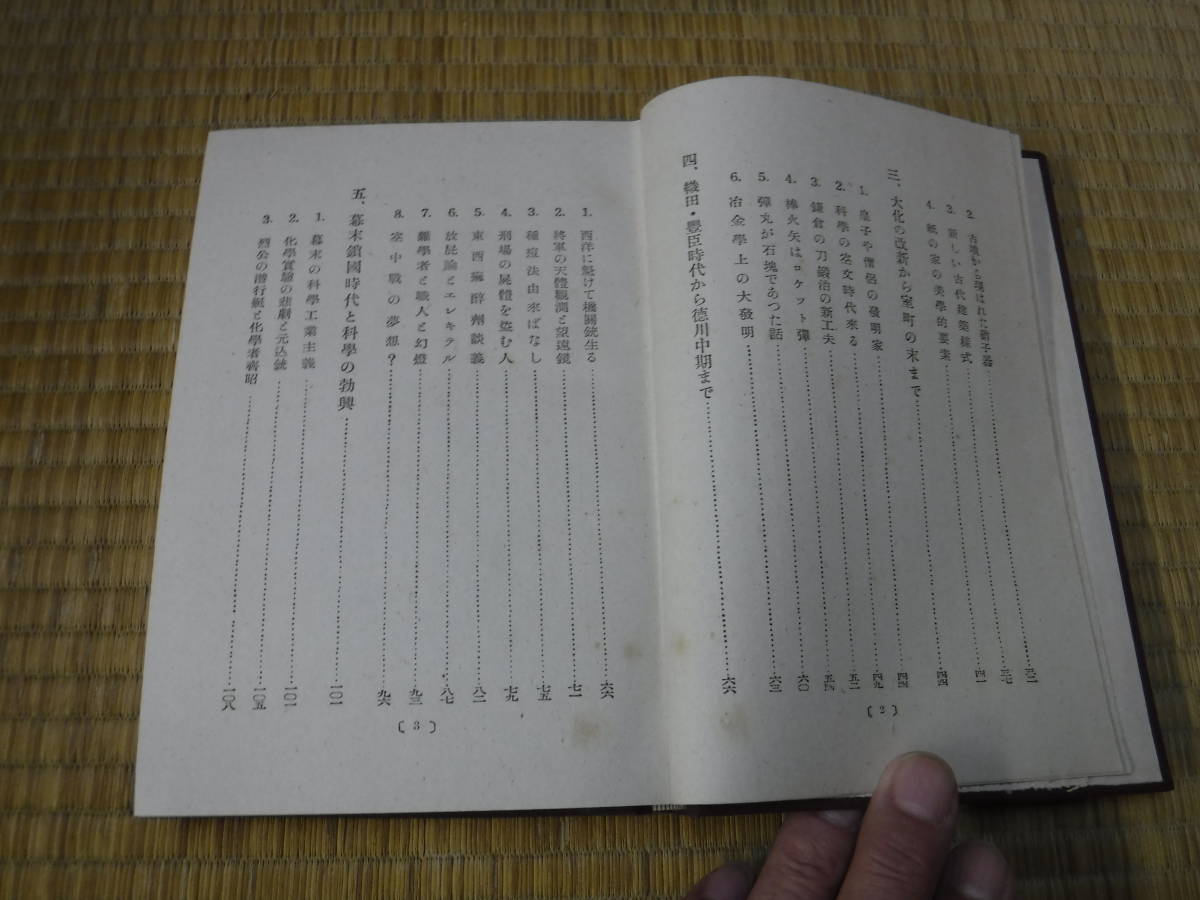 2. 古墳から現はれた硝子器……三二
3. 新しい古代建築様式……三七
4. 紙の家の美學的要素……四一
三、大化の改新から室町の末まで……四四
1. 皇子や僧侶の發明家……四四
2. 科學の空文時代來る……四九
3. 鎌倉の刀鍛冶の新工夫……五二
4. 棒火矢はロケット彈……五四
5. 彈丸が石塊であつた話……六〇
6. 冶金學上の大發明……六三
四、織田・豐臣時代から德川中期まで……六六
〔2〕
1. 西洋に魁けて機關銃生る……六六
2. 將軍の天體觀測と望遠鏡……七一
3. 種痘法由來ばなし……七五
4. 刑場の屍體を盜む人……七九
5. 東西痲醉劑談義……八二
6. 放屁論とエレキテル……八七
7. 蘭學者と職人と幻燈……九三
8. 空中戰の夢想？……九六
五、幕末鎖國時代と科學の勃興……一〇一
1. 幕末の科學工業主義……一〇一
2. 化學實驗の悲劇と元込銃……一〇五
3. 烈公の潜行艇と化學者齊昭……一〇八
〔3〕